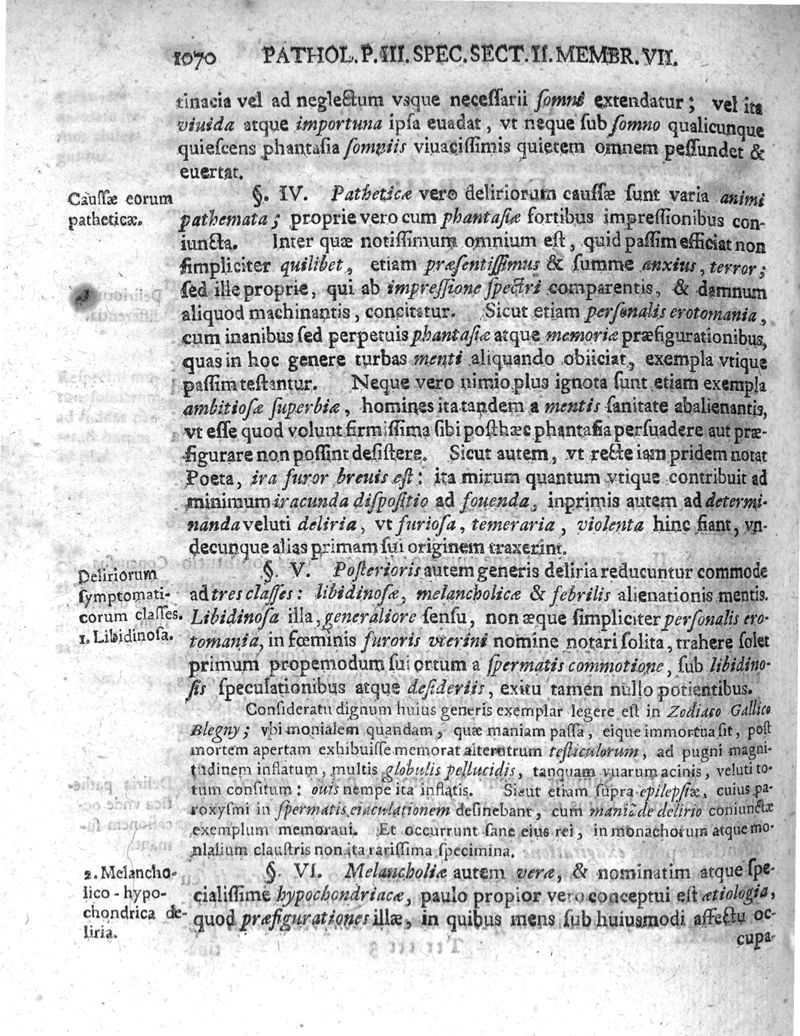 1070 PATHOL.P.III.SPEC.SECT.II.MEMBR.VII.
tinacia vel ad neglectum vsque necessarii somni extendatur; vel ita
viuida atque importuna ipsa euadat, vt neque sub somno qualicunque
quiescens phantasia somniis viuacissimis quietem omnem pessundet &
euertat.
Caussæ eorum
patheticæ.
§. IV. Patheticæ vero deliriorum caussæ sunt varia animi
pathemata; proprie vero cum phantasiæ fortibus impressionibus con-
iuncta. Inter quæ notissimum omnium est, quid passim efficiat non
simpliciter quilibet, etiam præsentissimus & summe anxius, terror;
sed ille proprie, qui ab impressione spectri comparentis, & damnum
aliquod machinantis, concitatur. Sicut etiam personalis erotomania,
cum inanibus sed perpetuis phantasiæ atque memoriæ præfigurationibus,
quas in hoc genere turbas menti aliquando obiiciat, exempla vtique
passim testantur. Neque vero nimio plus ignota sunt etiam exempla
ambitiosæ superbiæ, homines ita tandem a mentis sanitate abalienantis,
vt esse quod volunt firmissima sibi posthæc phantasia persuadere aut præ-
figurare non possint desistere. Sicut autem, vt recte iam pridem notat
Poeta, ira furor breuis est: ita mirum quantum vtique contribuit ad
minimum iracunda dispositio ad fouenda, inprimis autem ad determi-
nanda veluti deliria, vt furiosa, temeraria, violenta hinc fiant, vn-
decunque alias primam sui originem traxerint.
Deliriorum
symptomati-
corum classes.
1. Libidinosa.
§. V. Posterioris autem generis deliria reducuntur commode
ad tres classes: libidinosæ, melancholicæ & febrilis alienationis mentis.
Libidinosa illa, generaliore sensu, non æque simpliciter personalis ero-
tomania, in fœminis furoris vterini nomine notari solita, trahere solet
primum propemodum sui ortum a spermatis commotione, sub libidino-
sis speculationibus atque desideriis, exitu tamen nullo potientibus.
Consideratu dignum huius generis exemplar legere est in Zodiaco Gallico
Blegny; vbi monialem quandam, quæ maniam passa, eique immortua sit, post
mortem apertam exhibuisse memorat alterutrum testiculorum, ad pugni magni-
tudinem inflatum, multis globulis pellucidis, tanquam vuarum acinis, veluti to-
tum consitum: ouis nempe ita inflatis. Sicut etiam supra epilepsiæ, cuius pa-
roxysmi in spermatis eiaculationem desinebant, cum maniæ de delirio coniunctæ
exemplum memoraui. Et occurrunt sane eius rei, in monachorum atque mo-
nialium claustris non ita rarissima specimina.
2. Melancho-
lico-hypo-
chondrica de-
liria.
§. VI. Melancholiæ autem veræ, & nominatim atque spe-
cialissime hypochondriacæ, paulo propior vero conceptui est ætiologia,
quod præfigurationes illæ, in quibus mens sub huiusmodi affectu oc-
cupa-